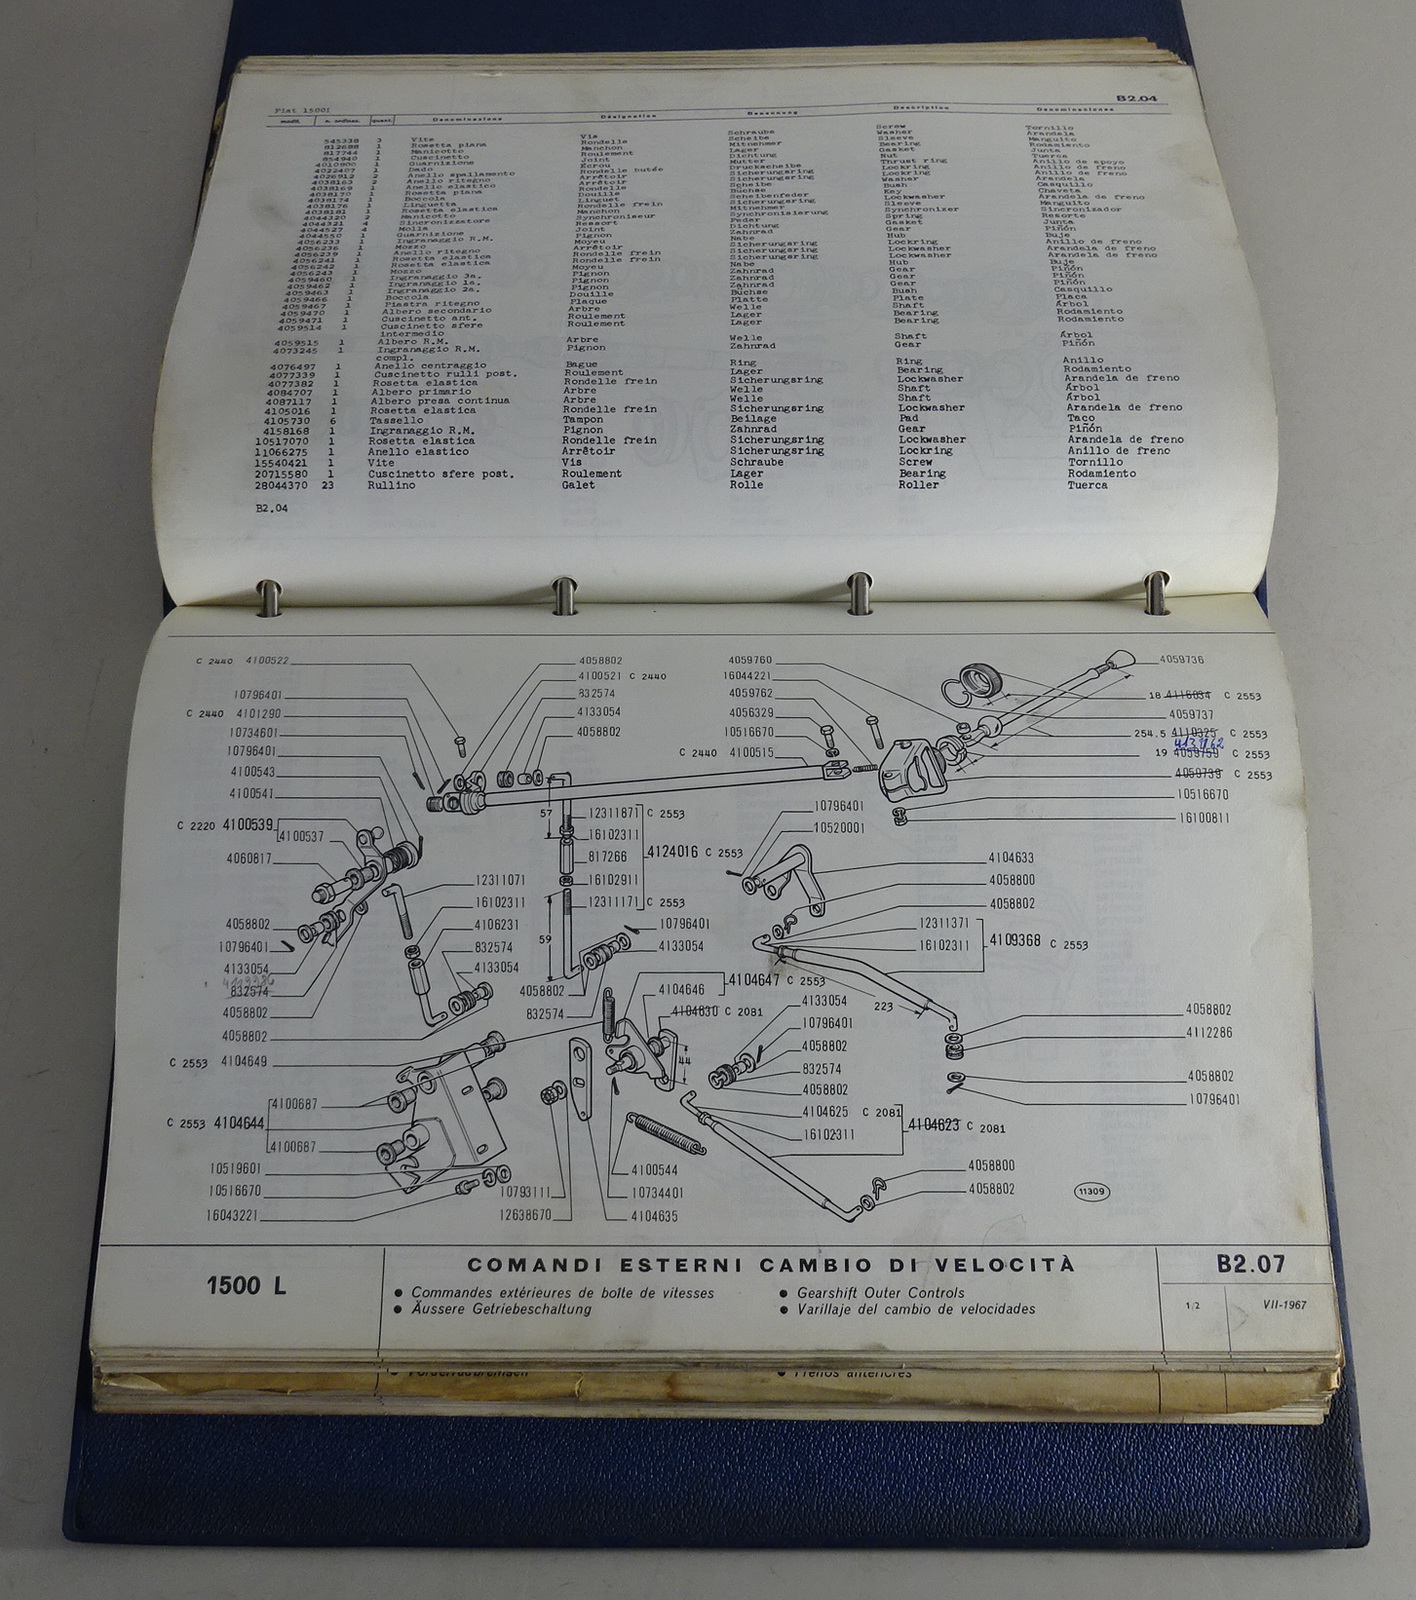 Fiat 1500L B2.04
modif. n. ordinaz. quant. Denominazione Désignation Benennung Description Denominaciones
545338 3 Vite Vis Schraube Screw Tornillo
812688 1 Rosetta piana Rondelle Scheibe Washer Arandela
817744 1 Manicotto Manchon Mitnehmer Sleeve Manguito
854940 1 Cuscinetto Roulement Lager Bearing Rodamiento
4010800 1 Guarnizione Joint Dichtung Gasket Junta
4022407 1 Dado Écrou Mutter Nut Tuerca
4026912 2 Anello spallamento Rondelle butée Druckscheibe Thrust ring Anillo de apoyo
4038163 2 Anello ritegno Arrêtoir Sicherungsring Lockring Anillo de freno
4038169 1 Anello elastico Arrêtoir Sicherungsring Lockring Anillo de freno
4038170 1 Rosetta piana Rondelle Scheibe Washer Arandela
4038174 1 Boccola Douille Büchse Bush Casquillo
4038176 1 Linguetta Linguet Scheibenfeder Key Chaveta
4038181 2 Rosetta elastica Rondelle frein Sicherungsring Lockwasher Arandela de freno
4044320 2 Manicotto Manchon Mitnehmer Sleeve Manguito
4044321 4 Sincronizzatore Synchroniseur Synchronisierung Synchronizer Sincronizador
4044527 4 Molla Ressort Feder Spring Resorte
4044550 1 Guarnizione Joint Dichtung Gasket Junta
4056233 1 Ingranaggio R.M. Pignon Zahnrad Gear Piñón
4056236 1 Mozzo Moyeu Nabe Hub Buje
4056239 1 Anello ritegno Arrêtoir Sicherungsring Lockring Anillo de freno
4056241 1 Rosetta elastica Rondelle frein Sicherungsring Lockwasher Arandela de freno
4056242 1 Rosetta elastica Rondelle frein Sicherungsring Lockwasher Arandela de freno
4056243 1 Mozzo Moyeu Nabe Hub Buje
4059460 1 Ingranaggio 3a. Pignon Zahnrad Gear Piñón
4059462 1 Ingranaggio 1a. Pignon Zahnrad Gear Piñón
4059463 1 Ingranaggio 2a. Pignon Zahnrad Gear Piñón
4059466 1 Boccola Douille Büchse Bush Casquillo
4059467 1 Piastra ritegno Plaque Platte Plate Placa
4059470 1 Albero secondario Arbre Welle Shaft Árbol
4059471 1 Cuscinetto ant. Roulement Lager Bearing Rodamiento
4059514 1 Cuscinetto sfere Roulement Lager Bearing Rodamiento
intermedio
4059515 1 Albero R.M. Arbre Welle Shaft Árbol
4073245 1 Ingranaggio R.M. Pignon Zahnrad Gear Piñón
compl.
4076497 1 Anello centraggio Bague Ring Ring Anillo
4077339 1 Cuscinetto rulli post. Roulement Lager Bearing Rodamiento
4077382 1 Rosetta elastica Rondelle frein Sicherungsring Lockwasher Arandela de freno
4084707 1 Albero primario Arbre Welle Shaft Árbol
4087117 1 Albero presa continua Arbre Welle Shaft Árbol
4105016 1 Rosetta elastica Rondelle frein Sicherungsring Lockwasher Arandela de freno
4105730 6 Tassello Tampon Beilage Pad Taco
4158168 1 Ingranaggio R.M. Pignon Zahnrad Gear Piñón
10517070 1 Rosetta elastica Rondelle frein Sicherungsring Lockwasher Arandela de freno
11066275 1 Anello elastico Arrêtoir Sicherungsring Lockring Anillo de freno
15540421 1 Vite Vis Schraube Screw Tornillo
20715580 1 Cuscinetto sfere post. Roulement Lager Bearing Rodamiento
28044370 23 Rullino Galet Rolle Roller Tuerca
B2.04
C 2440 4100522 4058802 4059760 4059736
4100521 C 2440 16044221
10796401 832574 4059762 18 4116034 C 2553
C 2440 4101290 4133054 4056329 4059737
10734601 4058802 10516670 254.5 4110325 C 2553
10796401 C 2440 4100515 19 4059759 C 2553
4100543 4059738 C 2553
4100541 10516670
57 12311871 C 2553 10796401 16100811
C 2220 4100539 4100537 16102311 10520001
4060817 817266 4124016 C 2553 4104633
12311071 16102911 4058800
16102311 12311171 C 2553 4058802
4058802 4106231 10796401 12311371
10796401 832574 59 4133054 16102311 4109368 C 2553
4133054 4133054
832574 4058802 4104647 C 2553
4058802 832574 4104646 4133054 223 4058802
4058802 4104630 C 2081 10796401 4112286
C 2553 4104649 44 4058802
832574 4058802
4100687 4058802 10796401
C 2553 4104644 4104625 C 2081 4104623 C 2081
4100687 16102311
10519601 4100544 4058800
10516670 10793111 10734401 4058802 11309
16043221 12638670 4104635
1500 L
COMANDI ESTERNI CAMBIO DI VELOCITÀ
● Commandes extérieures de boîte de vitesses ● Gearshift Outer Controls
● Äussere Getriebeschaltung ● Varillaje del cambio de velocidades
B2.07
1/2 VII-1967
● Vorderradbremsen ● Frenos anteriores